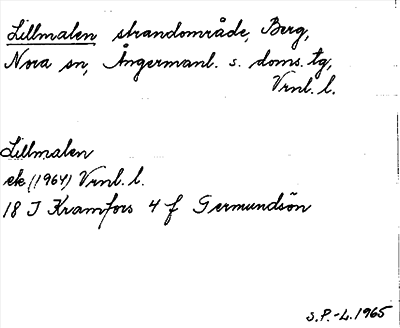 Lillmalen strandområde, Berg,
Nora sn, Ångermanl. s. doms. tg,
Vrnl. l.
Lillmalen
ek (1964) Vrnl. l.
18 I Kramfors 4 f Germundsön
S.P.-L. 1965